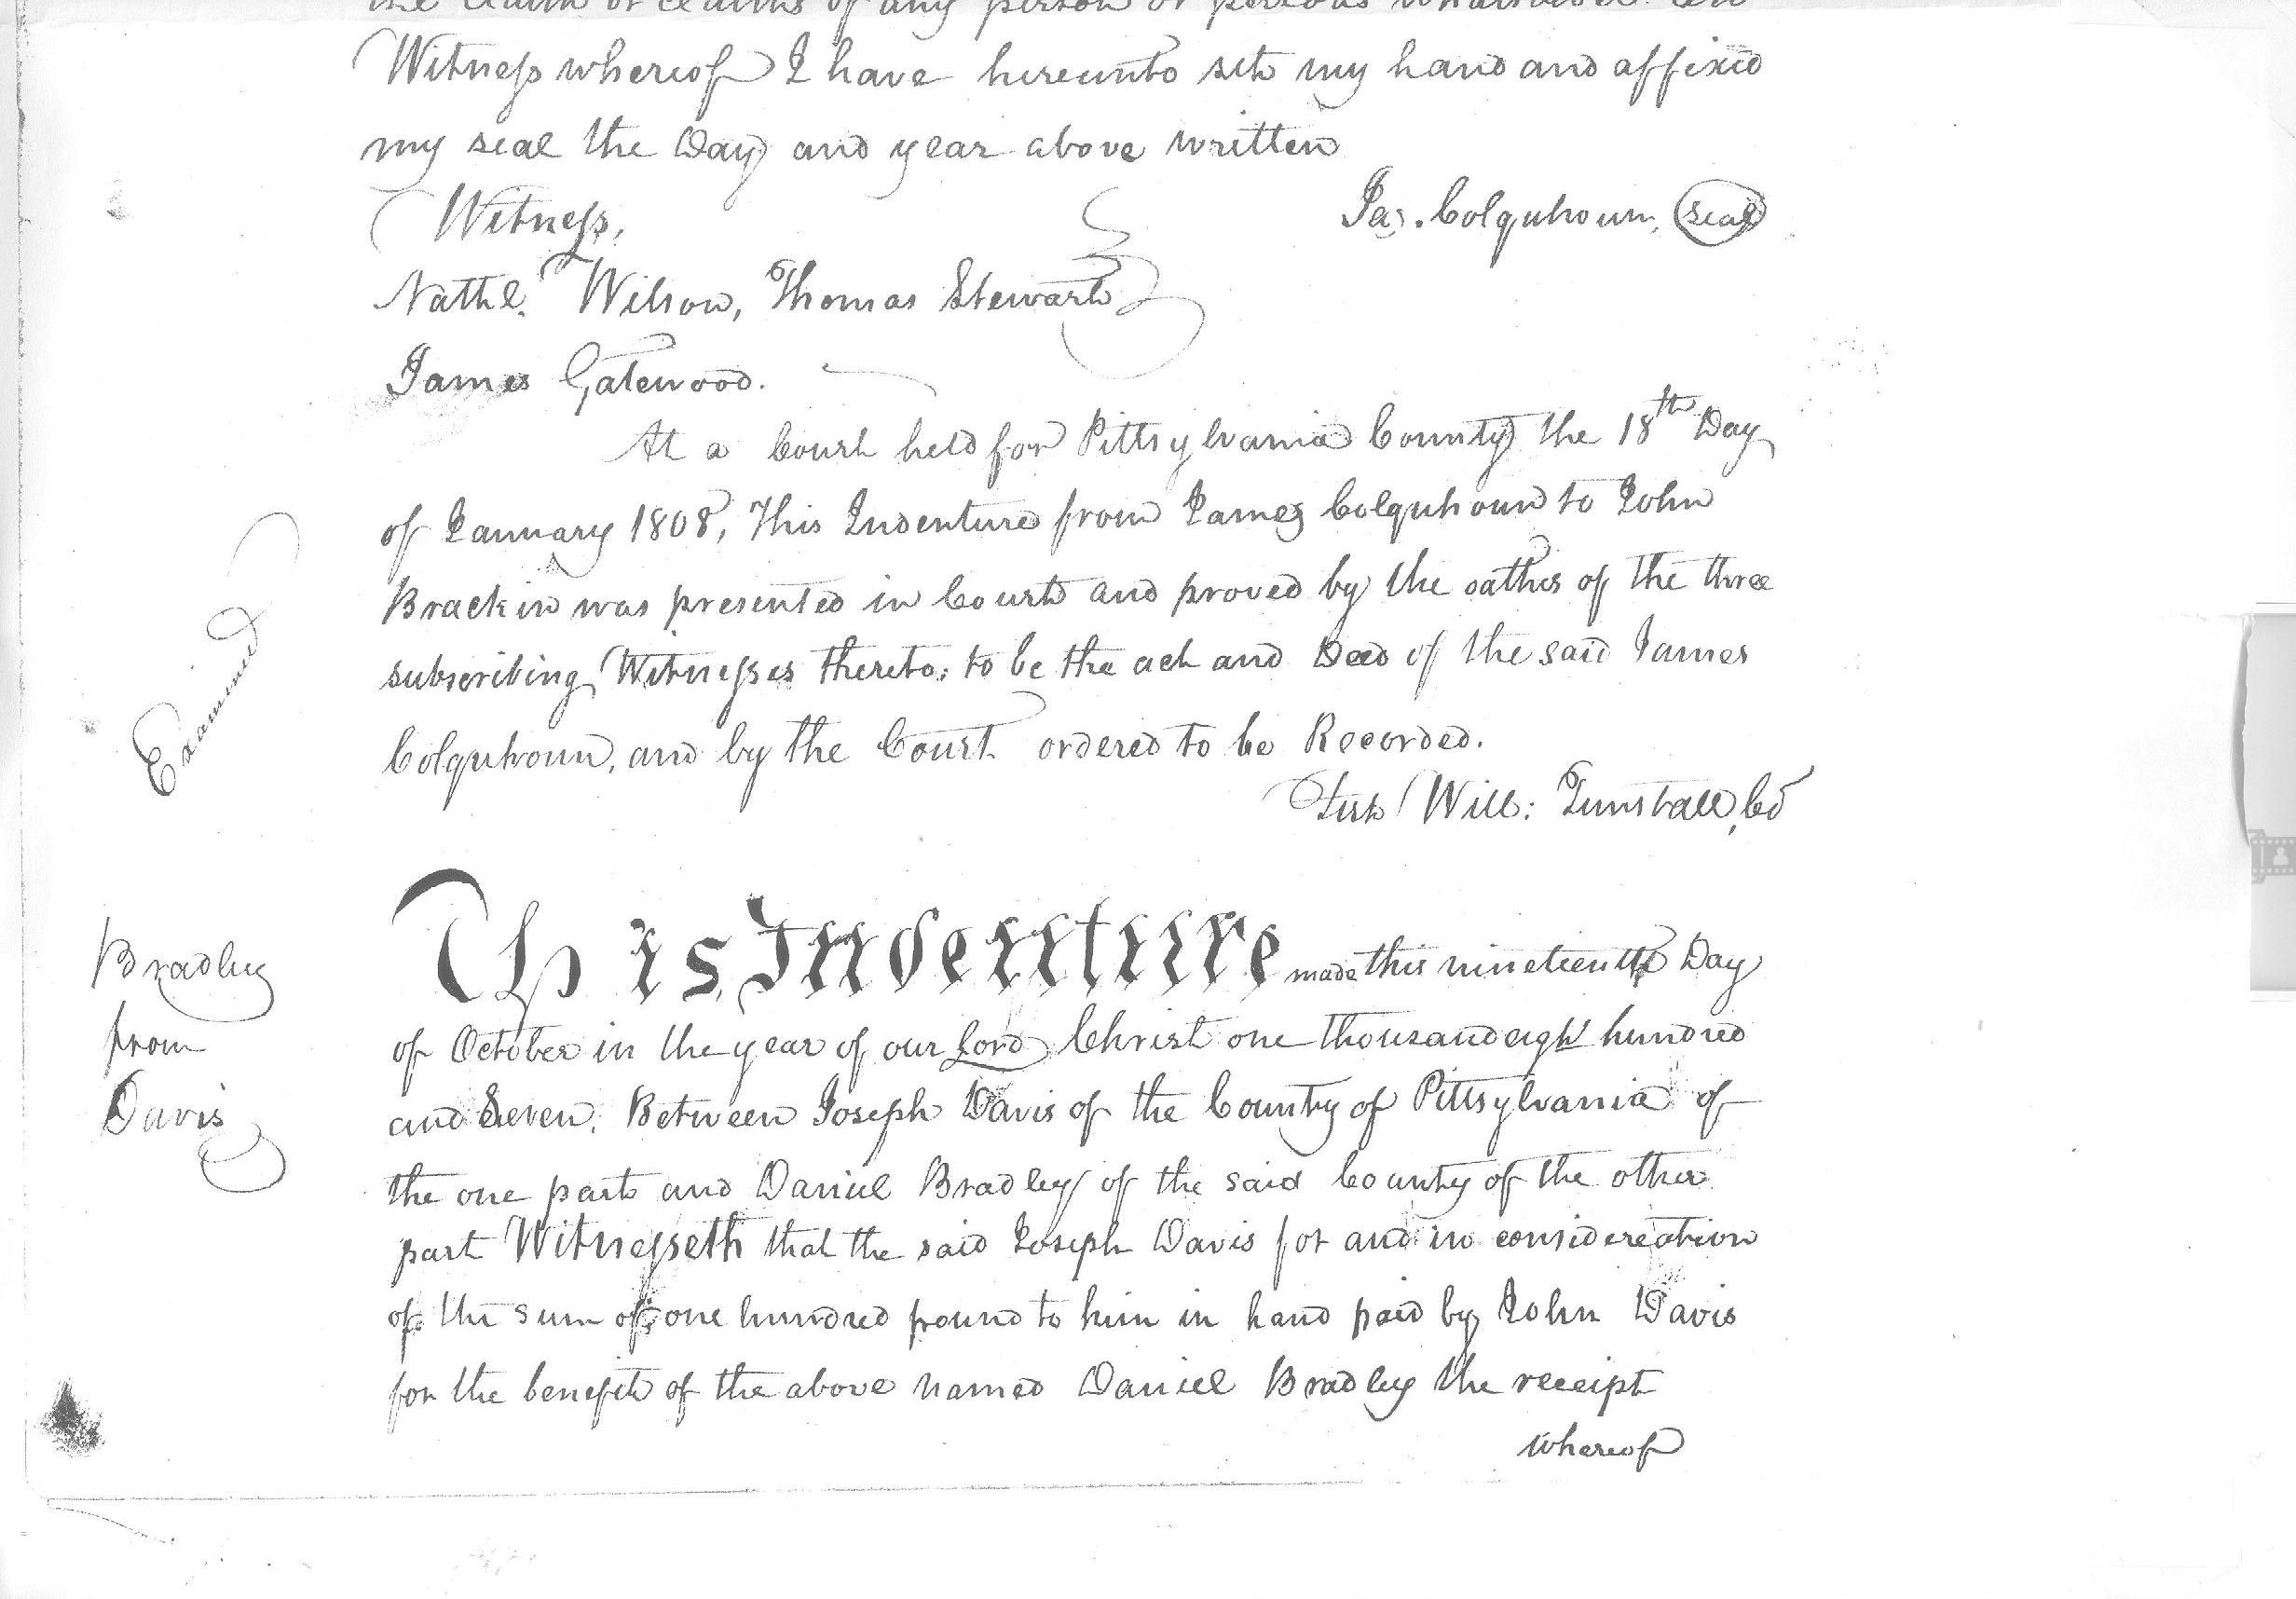 the claim or claims of any person or persons whatsoever. In
Witness whereof I have hereunto set my hand and affixed
my seal the Day and year above written
Witness,
Jas. Colquhoun, seal
Nathl. Wilson, Thomas Stewart
James Gatewood.
At a Court held for Pittsylvania County the 18th Day
of January 1808, This Indenture from James Colquhoun to John
Brackin was presented in Court and proved by the oathes of the three
subscribing Witnesses thereto: to be the act and Deed of the said James
Colquhoun, and by the Court ordered to be Recorded.
Examined
Test Will: Tunstall, CC
Bradley
from
Davis
This Indenture made this nineteenth Day
of October in the year of our Lord Christ one thousand eight hundred
and Seven. Between Joseph Davis of the County of Pittsylvania of
the one part and Daniel Bradley of the said County of the other
part Witnesseth that the said Joseph Davis for and in consideration
of the sum of one hundred pound to him in hand paid by John Davis
for the benefit of the above named Daniel Bradley the receipt
whereof